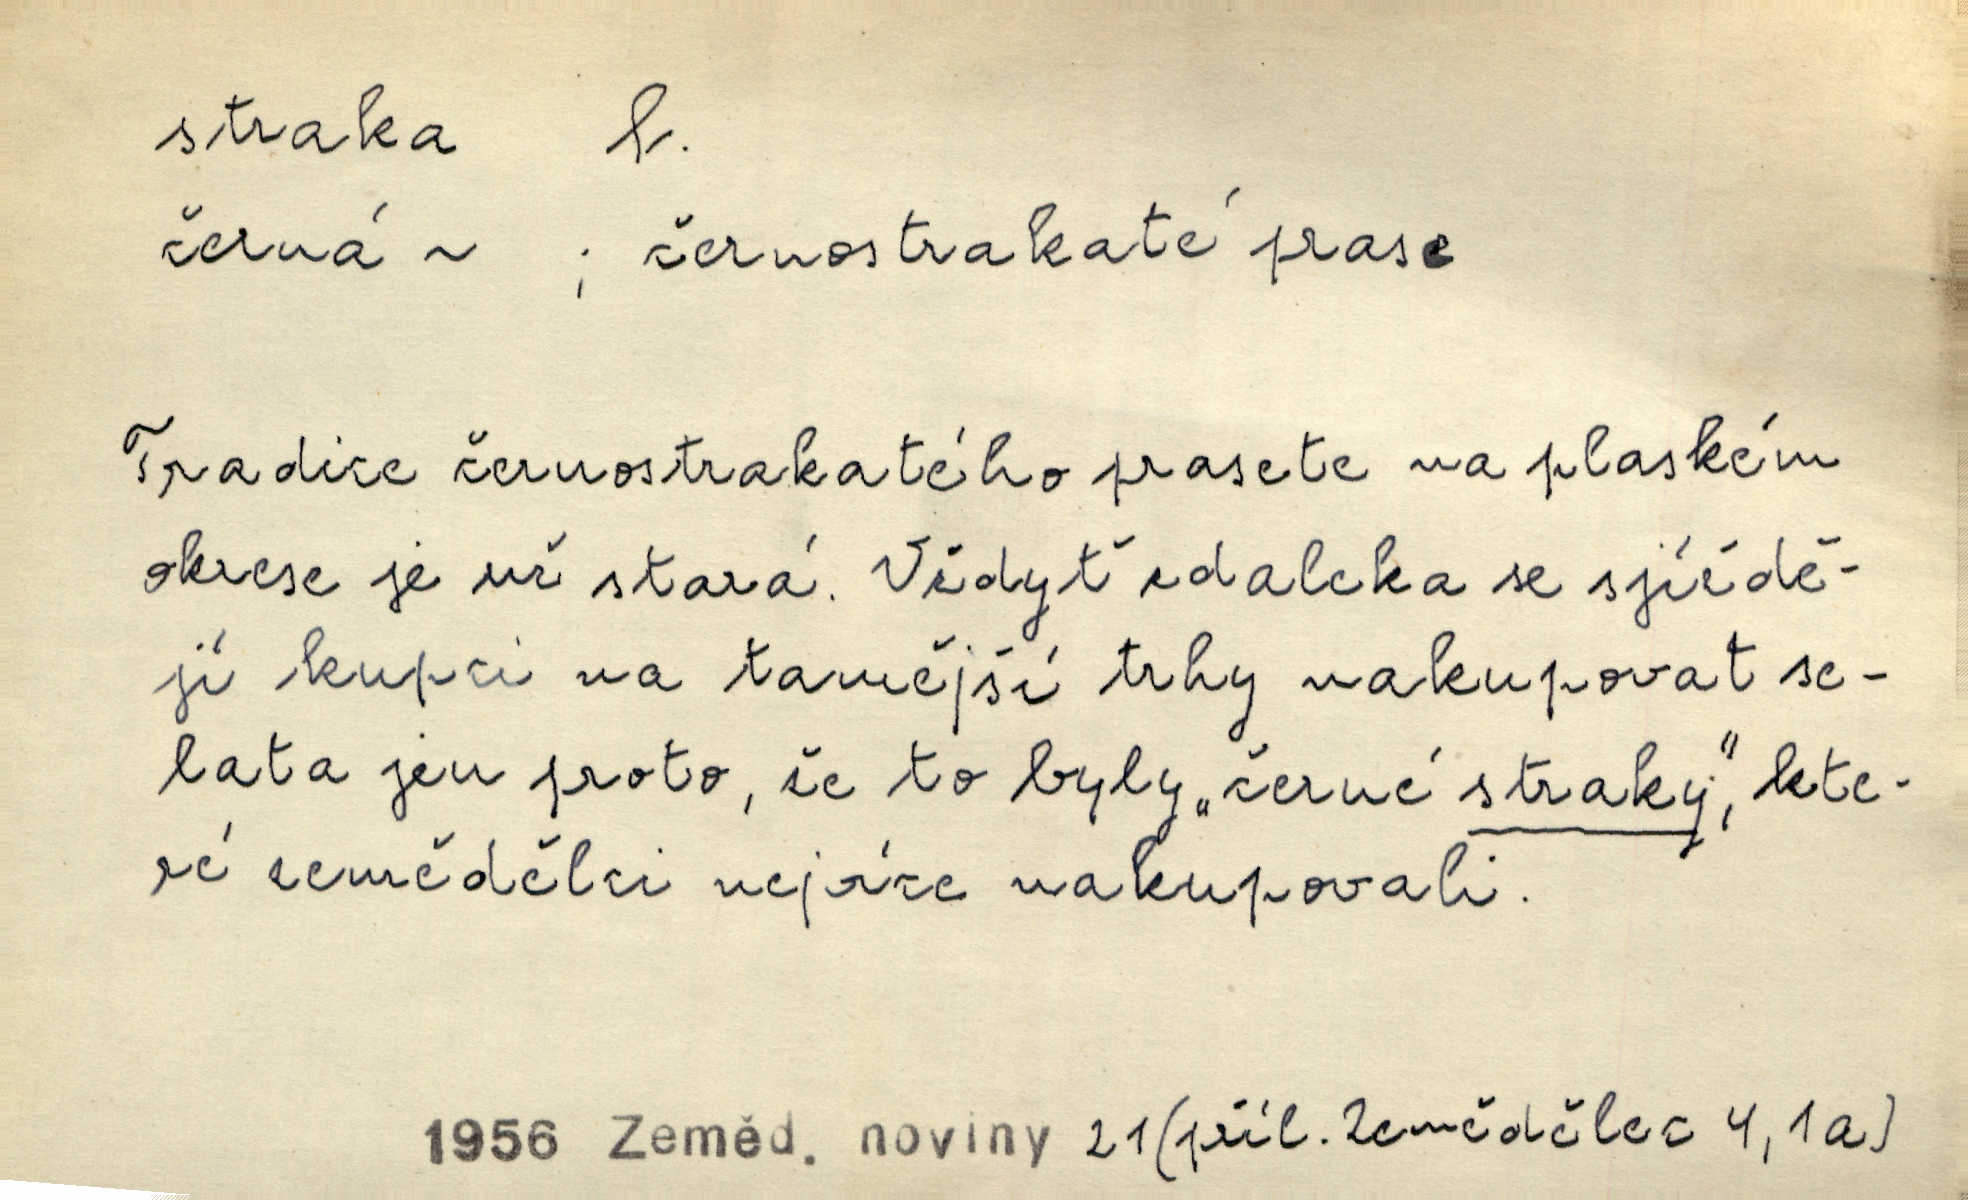 straka f.
černá ~ ; černostrakaté prase
Tradice černostrakatého prasete na plaském
okrese je už stará. Vždyť zdaleka se sjíždě-
jí kupci na tamější trhy nakupovat se-
lata jen proto, že to byly „černé straky“, kte-
ré zemědělci nejvíce nakupovali.
1956 Zeměd. noviny 21 (příl. Zemědělec 4, 1a)